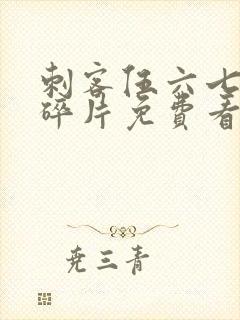 刺客伍六七
碎片免费看
尧三青